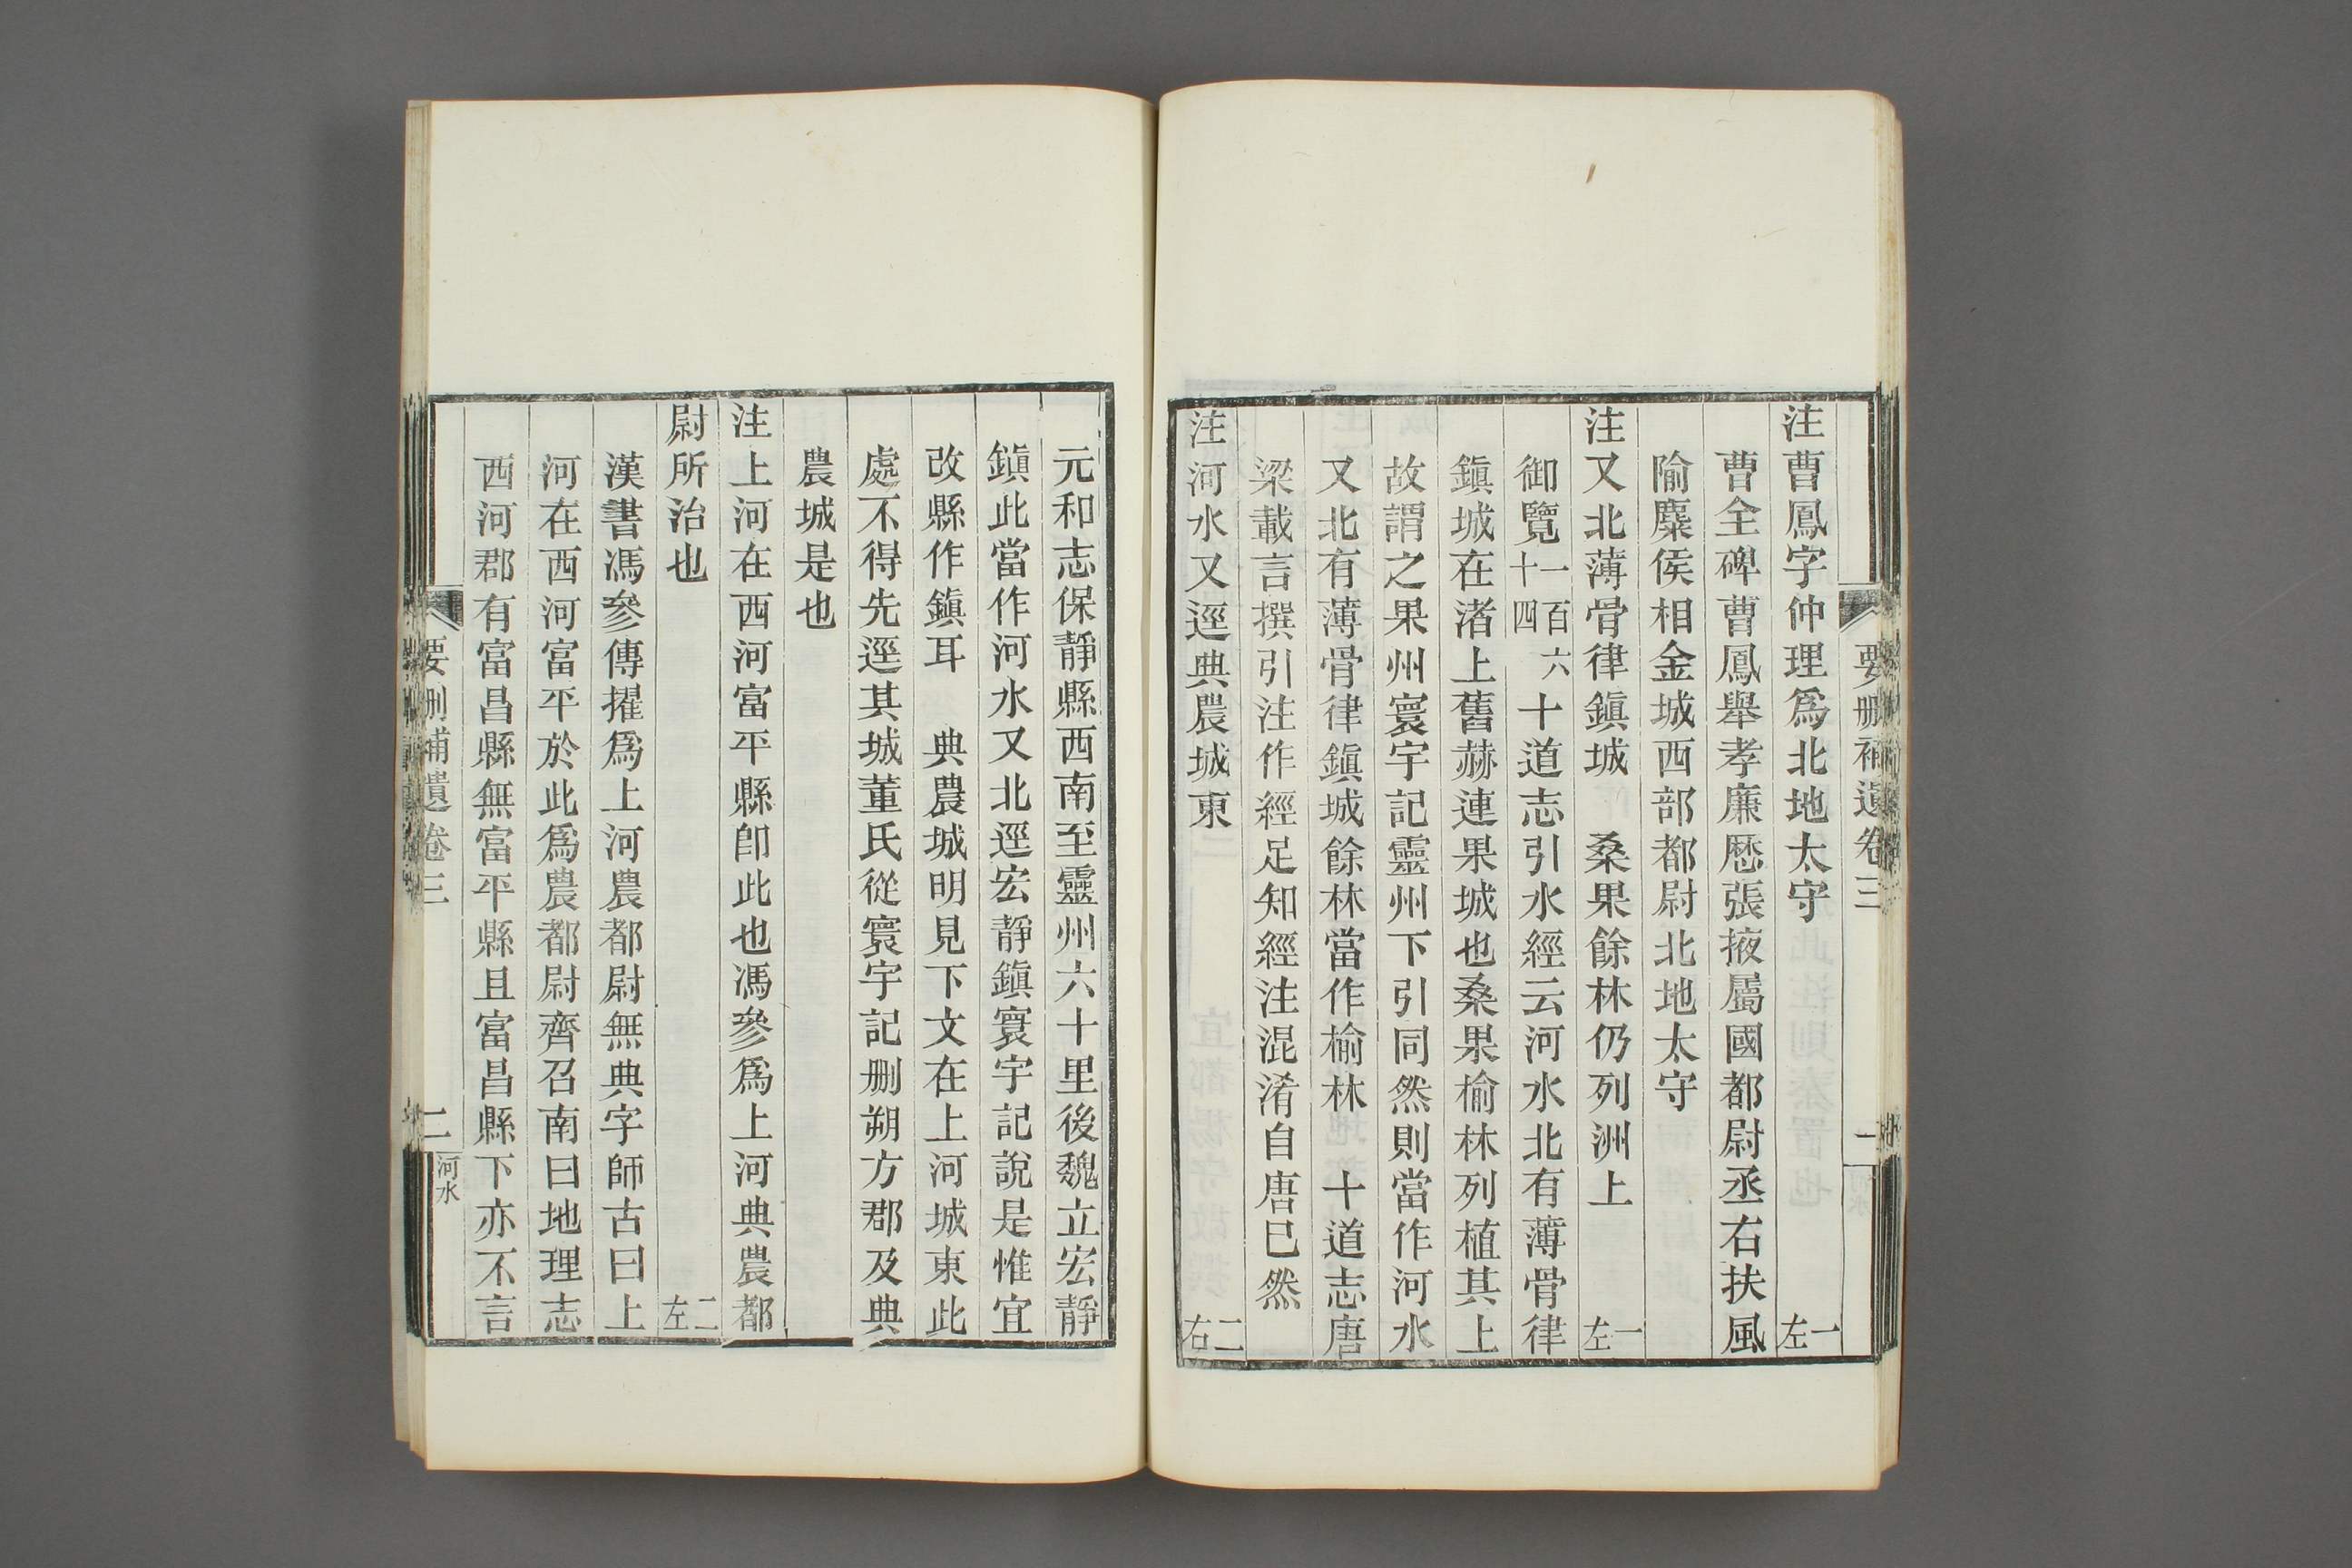 要刪補遺卷三 一
注曹鳳字仲理爲北地太守 一左
曹全碑曹鳳舉孝廉厯張掖屬國都尉丞右扶風
隃麋侯相金城西部都尉北地太守
注又北薄骨律鎮城 桑果餘林仍列洲上 一左
御覽一百六十四 十道志引水經云河水北有薄骨律
鎮城在渚上舊赫連果城也桑果榆林列植其上
故謂之果州寰宇記靈州下引同然則當作河水
又北有薄骨律鎮城餘林當作榆林 十道志唐
梁載言撰引注作經足知經注混淆自唐已然
注河水又逕典農城東 二右
元和志保靜縣西南至靈州六十里後魏立宏靜
鎮此當作河水又北逕宏靜鎮寰宇記說是惟宜
改縣作鎮耳 典農城明見下文在上河城東此
處不得先逕其城董氏從寰宇記刪朔方郡及典
農城是也
注上河在西河富平縣卽此也馮參爲上河典農都
尉所治也 二左
漢書馮參傳擢爲上河農都尉無典字師古曰上
河在西河富平於此爲農都尉齊召南曰地理志
西河郡有富昌縣無富平縣且富昌縣下亦不言
要刪補遺卷三 二 河水